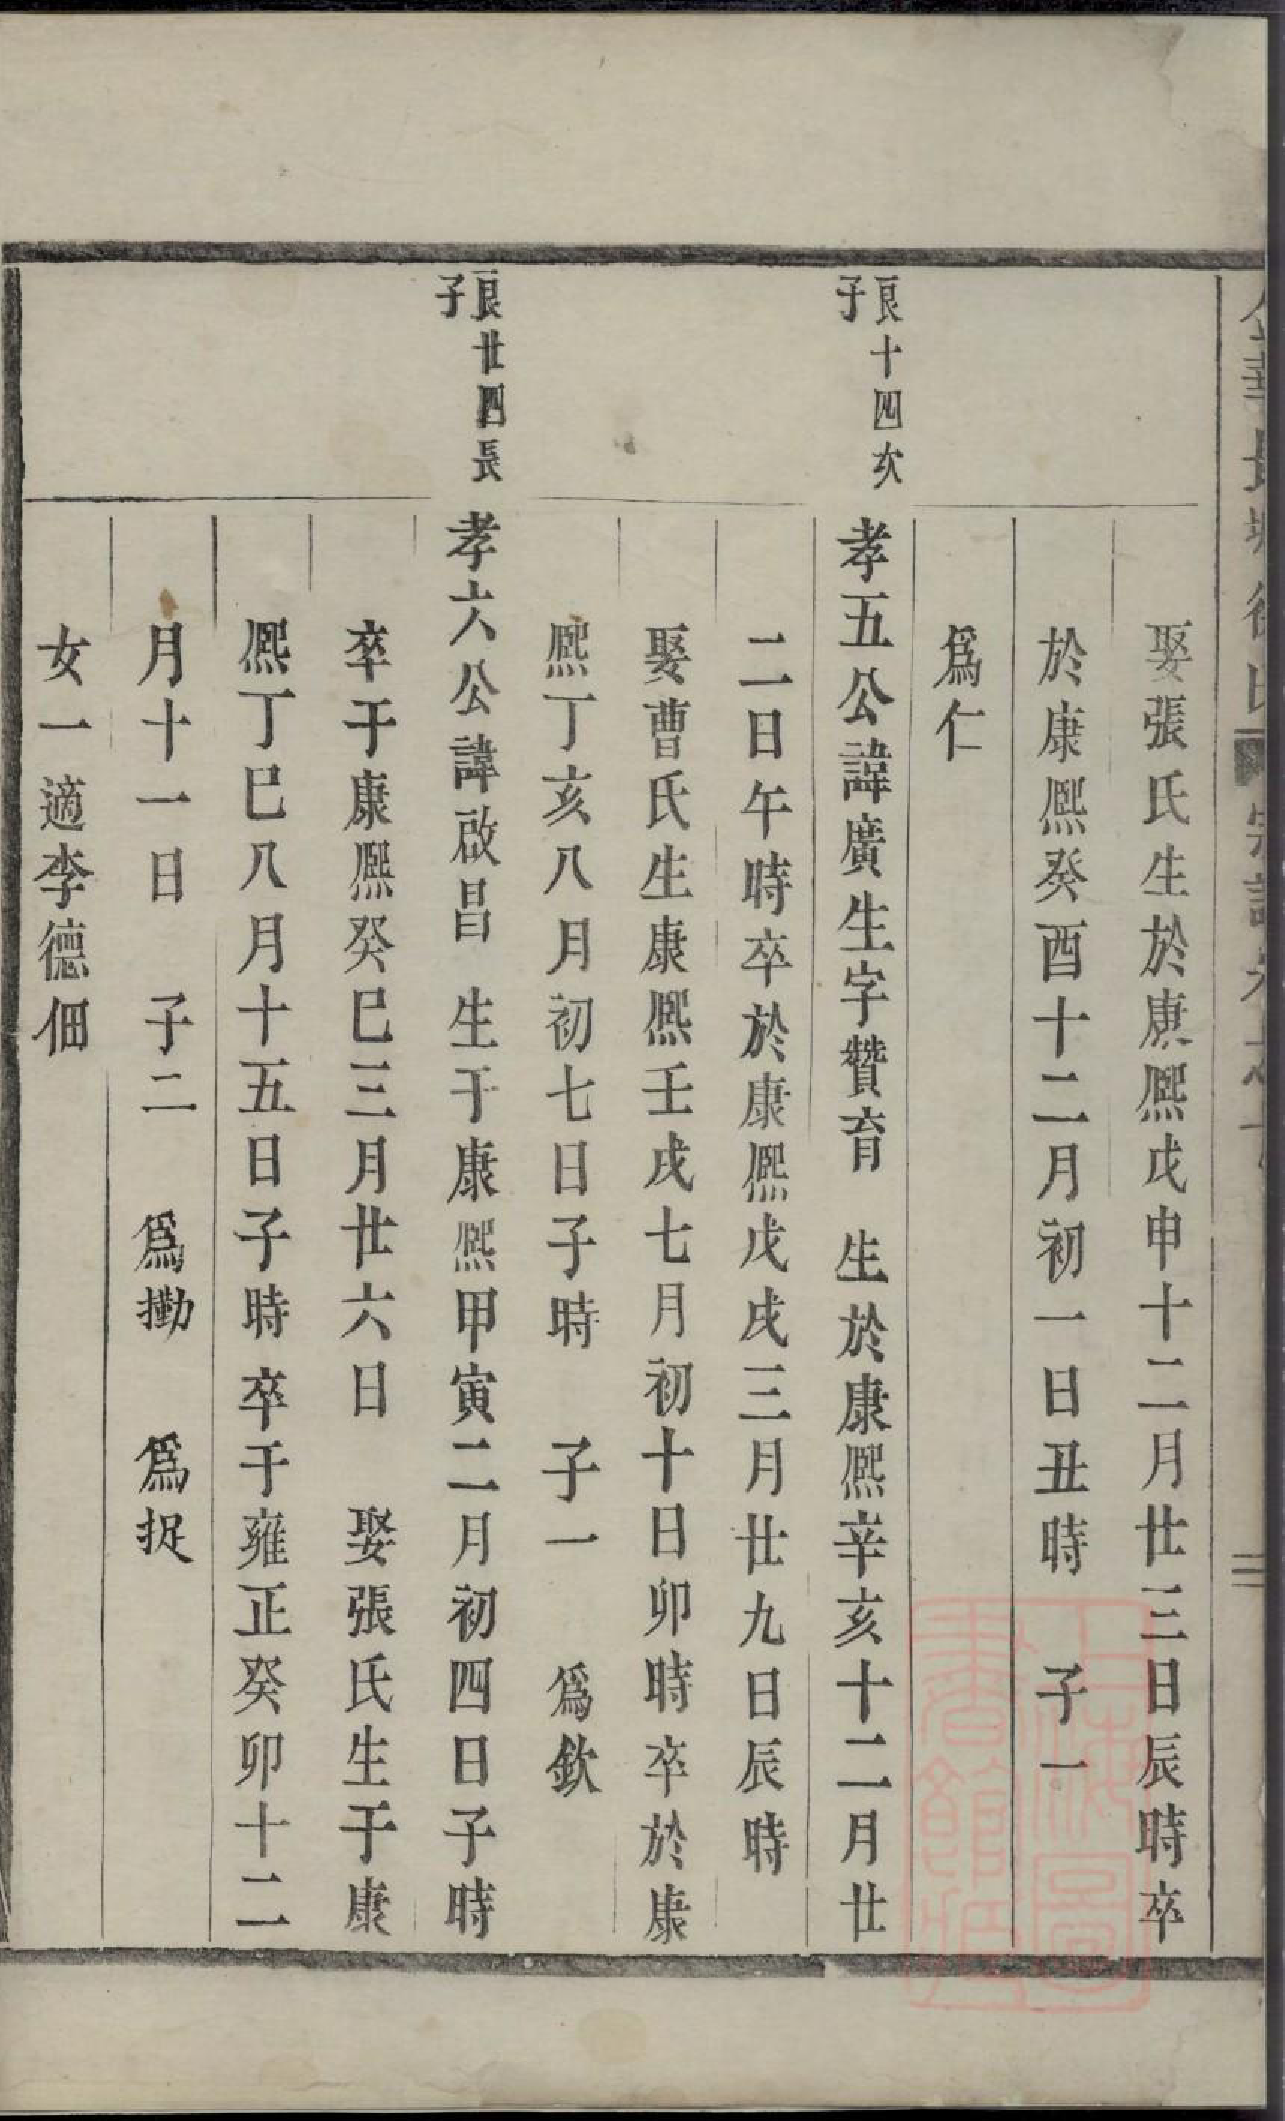 娶張氏生於康熈戊申十二月廿三日辰時卒
於康熈癸酉十二月初一日丑時 子一
爲仁
良十四次
子
孝五公諱廣生字贊育 生於康熈辛亥十二月廿
二日午時卒於康熈戊戌三月廿九日辰時
娶曹氏生康熈壬戌七月初十日卯時卒於康
熈丁亥八月初七日子時 子一 爲欽
良廿四長
子
孝六公諱啟昌 生于康熈甲寅二月初四日子時
卒于康熈癸巳三月廿六日 娶張氏生于康
熈丁巳八月十五日子時卒于雍正癸卯十二
月十一日 子二 爲擹 爲捉
女一適李德佃
上海圖書館藏